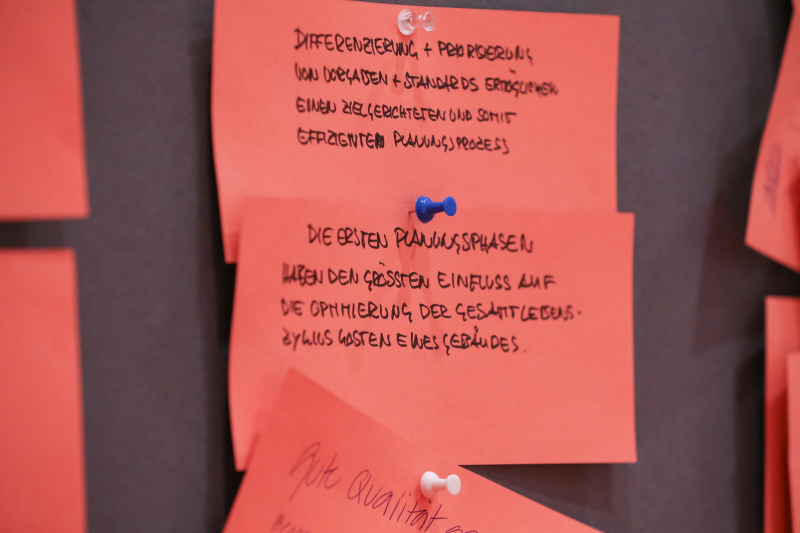 DIFFERENZIERUNG + PRIORISIERUNG
VON VORGABEN + STANDARDS ERMÖGLICHEN
EINEN ZIELGERICHTETEN UND SOMIT
EFFIZIENTEN PLANUNGSPROZESS
DIE ERSTEN PLANUNGSPHASEN
HABEN DEN GRÖSSTEN EINFLUSS AUF
DIE OPTIMIERUNG DER GESAMTLEBENS-
ZYKLUS KOSTEN EINES GEBÄUDES.
Gute Qualität